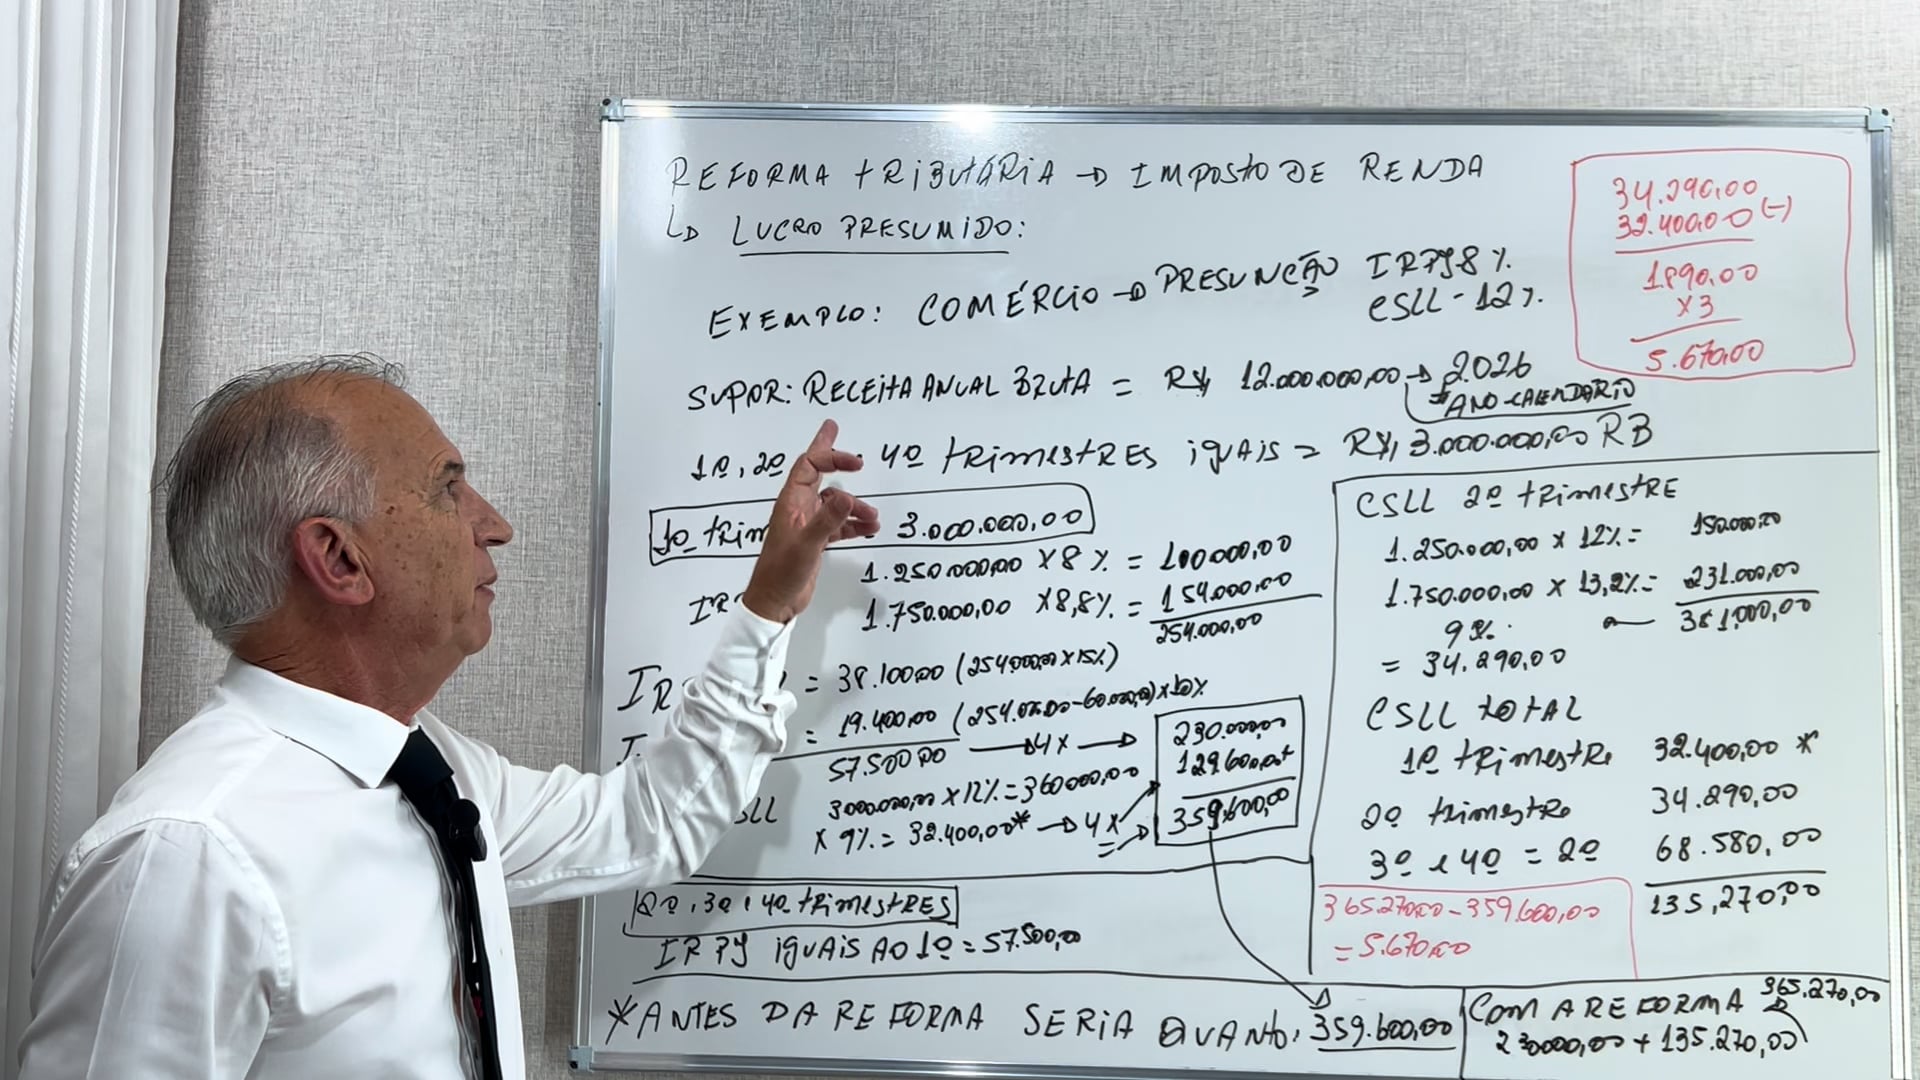 REFORMA TRIBUTÁRIA → IMPOSTO DE RENDA
↳ LUCRO PRESUMIDO:
EXEMPLO: COMÉRCIO → PRESUNÇÃO IRPJ 8%
CSLL - 12%.
SUPOR: RECEITA ANUAL BRUTA = R$ 12.000.000,00 → 2026
* ANO-CALENDÁRIO
1º, 2º 4º TRIMESTRES IGUAIS = R$ 3.000.000,00 RB
34.290,00
32.400,00 (-)
1890,00
X3
5.670,00
1º TRIM 3.000.000,00
1.250.000,00 X 8% = 100.000,00
1.750.000,00 X 8,8% = 154.000,00
254.000,00
= 38.100,00 (254.000,00 X 15%)
= 19.400,00 (254.000,00 - 60.000,00) X 10%
57.500,00 → 4X →
3.000.000,00 X 12% = 360.000,00
X 9% = 32.400,00* → 4X
230.000,00
129.600,00 +
359.600,00
2º, 3º e 4º TRIMESTRES
IRPJ IGUAIS AO 1º = 57.500,00
CSLL 2º TRIMESTRE
1.250.000,00 X 12% = 150.000,00
1.750.000,00 X 13,2% = 231.000,00
9% 381.000,00
= 34.290,00
CSLL TOTAL
1º TRIMESTRE 32.400,00 *
2º TRIMESTRE 34.290,00
3º e 4º = 2º 68.580,00
135.270,00
365.270,00 - 359.600,00
= 5.670,00
* ANTES DA REFORMA SERIA QUANTO: 359.600,00
COM A REFORMA 365.270,00
230.000,00 + 135.270,00